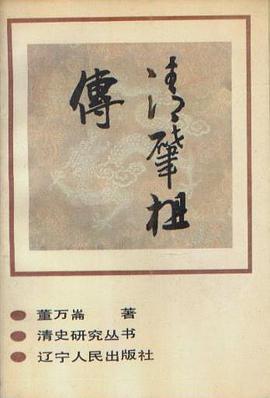 清肇祖
傳
董万崙 著
清史研究丛书
辽宁人民出版社